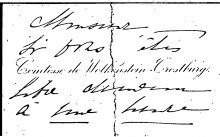 Monsieur
Si vous êtes
Comtesse de Wolkenstein-Trostburg.
libre
à une heure